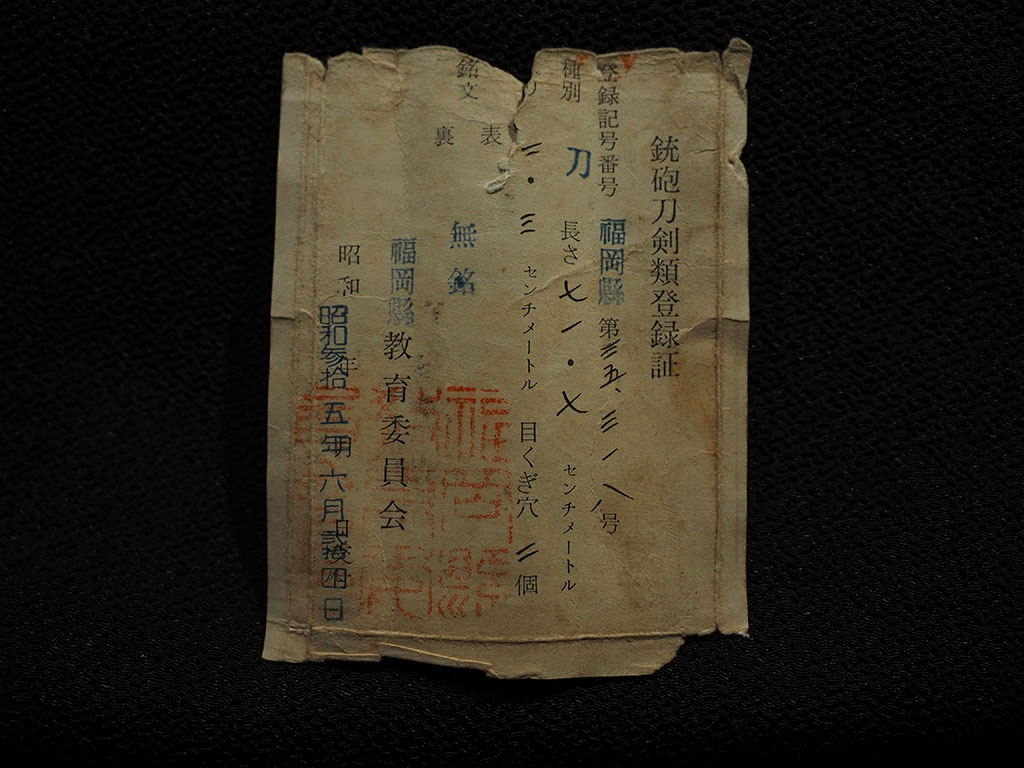 銃砲刀剣類登録証
登録記号番号 福岡縣 第三五、三一八号
種別 刀 長さ 七一・七 センチメートル
り 二・三 センチメートル 目くぎ穴 二個
銘文 表 無銘
裏
福岡縣教育委員会
昭和 年 月 日
昭和参拾五年六月弐拾四日